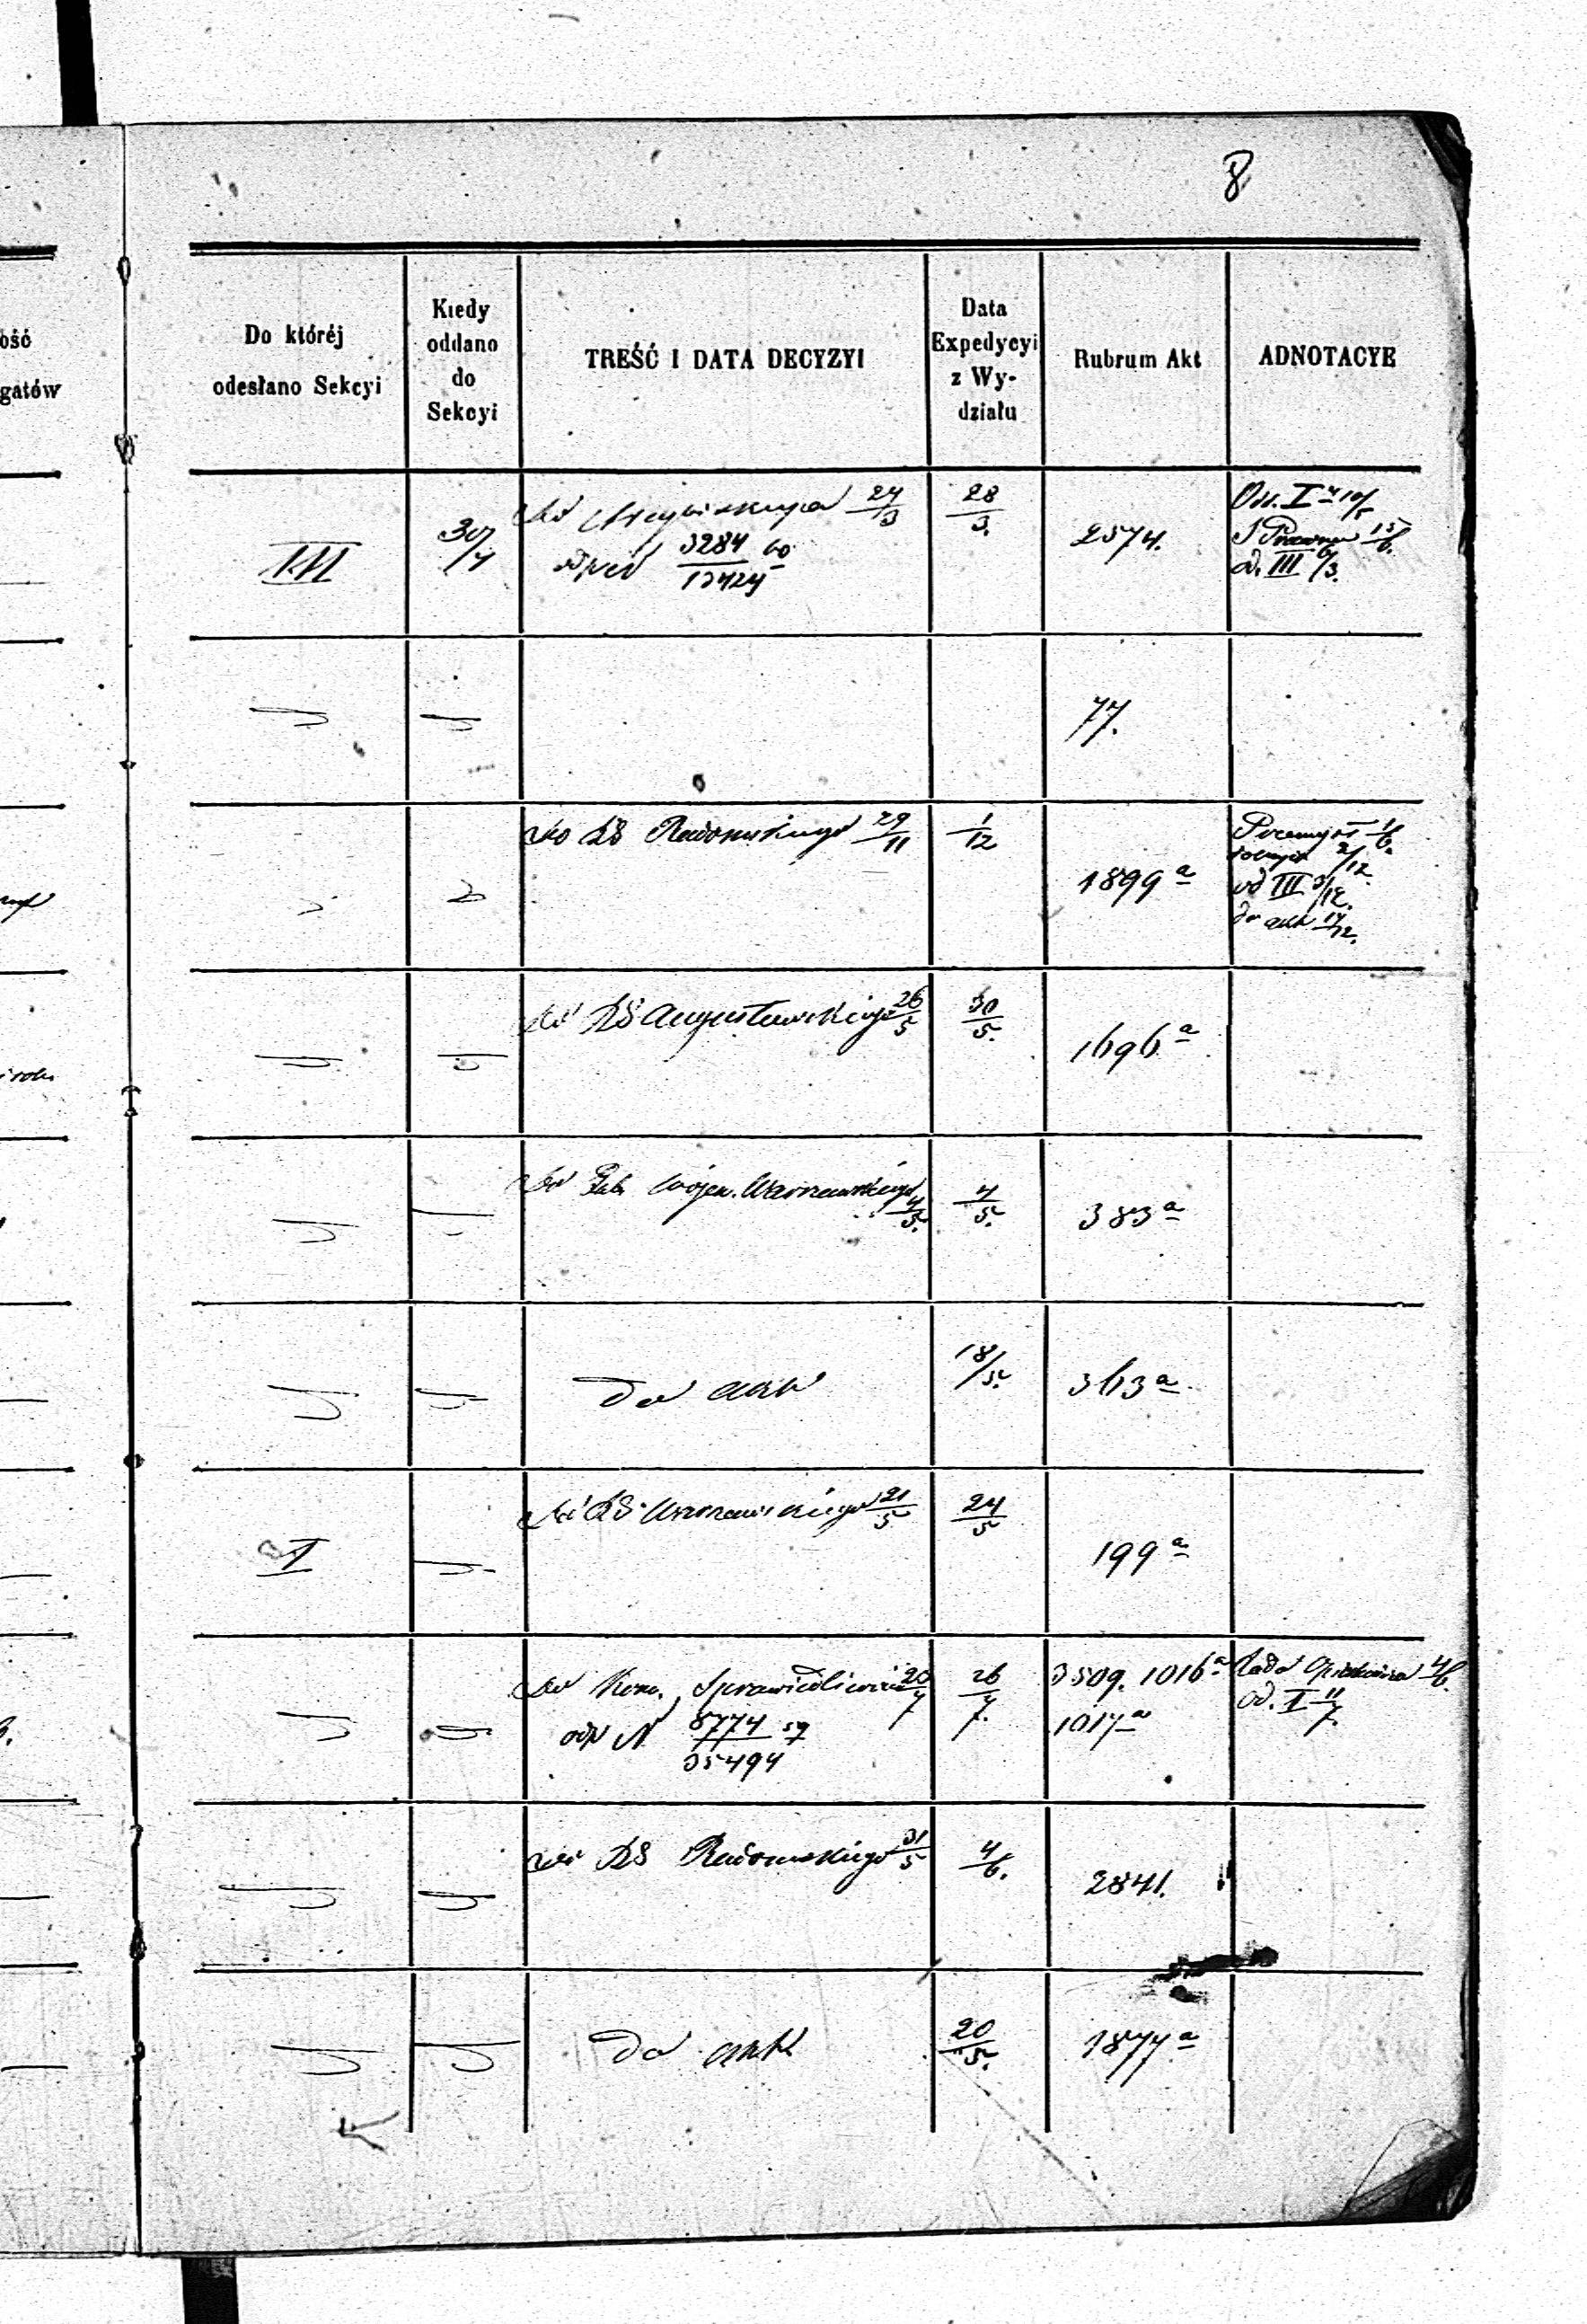 8
ość
gatów
Do któréj
odesłano Sekcyi
Kiedy
oddano
do
Sekcyi
TREŚĆ I DATA DECYZYI
Data
Expedycyi
z Wy-
działu
Rubrum Akt
ADNOTACYE
III
30/4
do Arcybiskupa 24/3
3284 60
13424
28/3.
2574.
od. III 6/3.
77.
do RG Radomskiego 29/11
1/12
1899 a
Przemysł 1/6.
2/12.
od III 3/12.
do akt 14/12.
do RG Augustowskiego 26/5
30/5.
1696 a
do Gub. Wojen. Warszawskiego 4/5.
4/5.
383 a
do akt
18/5.
363 a
I
do RG Warszawskiego 21/5
24/5
199 a
do Kom. Sprawiedliwości 20/7
odp N 8774 57
35494
26/7.
3509. 1016 a
1017 a
Rada Opiekuńcza 4/6.
od. I 11/7.
do RG Radomskiego 31/5
4/6.
2841.
do akt
20/5.
1877 a